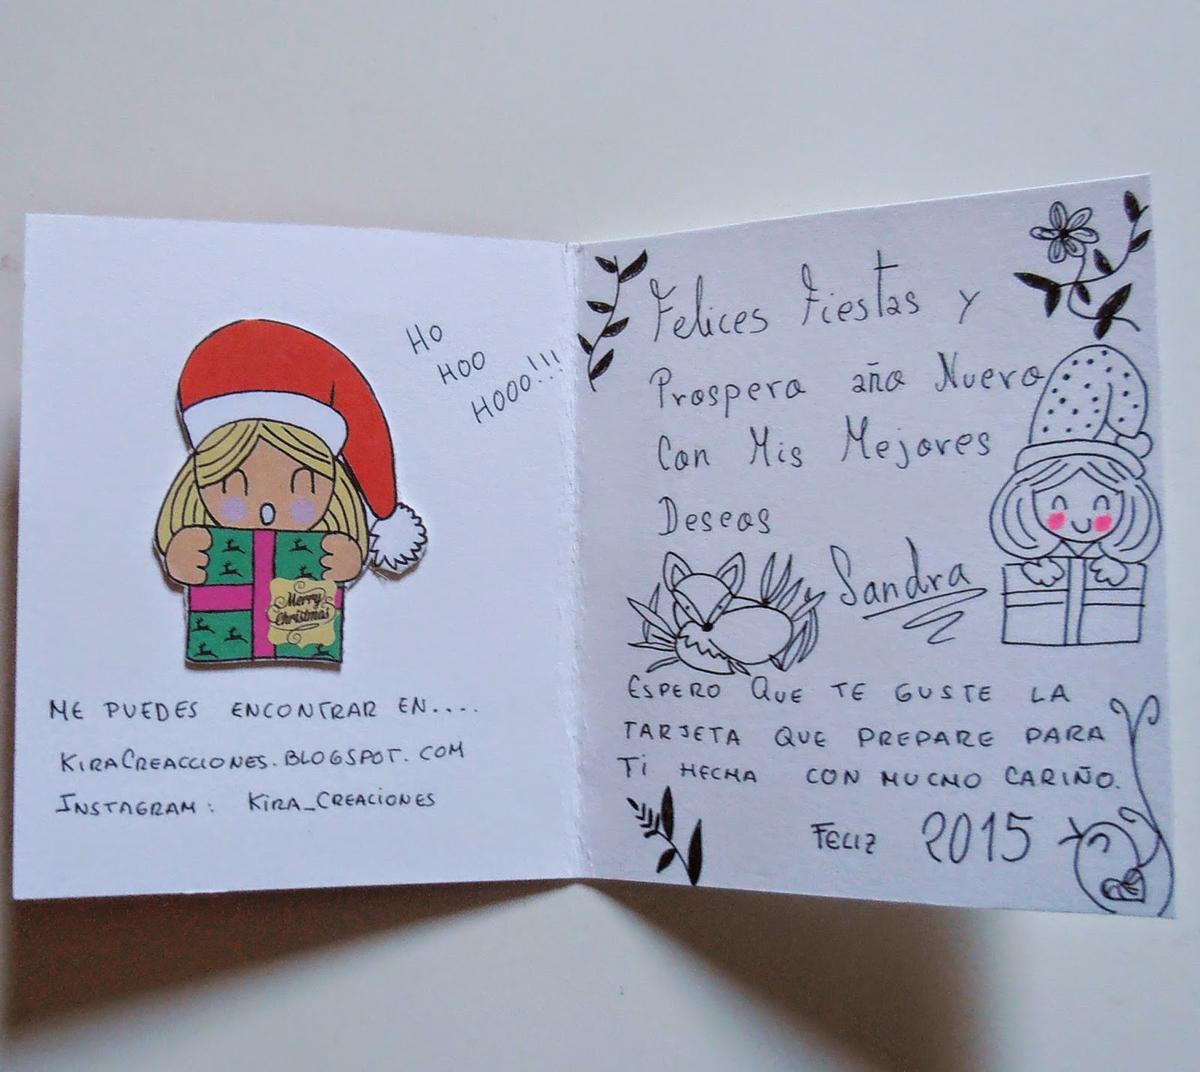 Ho
Hoo
Hooo!!!
Merry
Christmas
ME PUEDES ENCONTRAR EN....
KIRACREACCIONES.BLOGSPOT.COM
INSTAGRAM: KIRA_CREACIONES
Felices Fiestas y
Prospero año Nuevo
Con Mis Mejores
Deseos
Sandra
ESPERO QUE TE GUSTE LA
TARJETA QUE PREPARE PARA
TI HECHA CON MUCHO CARIÑO.
FELIZ 2015